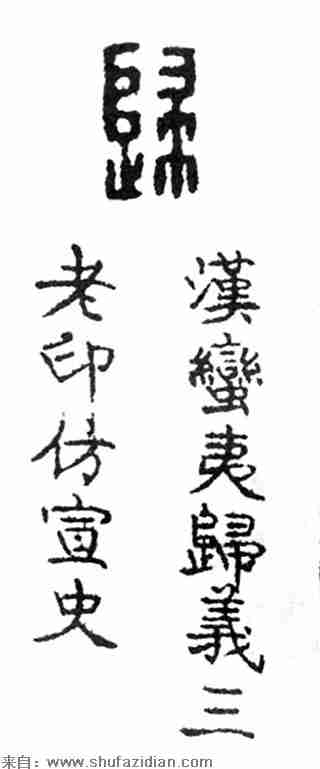 歸
漢蠻夷歸義三
老印仿宣史
来自：www.shufazidian.com